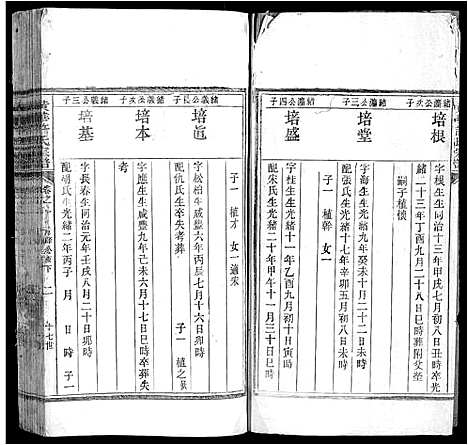 緒瀛公次子
培根
字槐生生同治十三年甲戌七月初八日丑時卒光
緒二十三年丁酉九月二十八日巳時葬附父塋
嗣子植樸
緒瀛公三子
培堂
字海生生同治九年癸未十月十三日戌時
配張氏生光緒十七年辛卯五月初七日卯時
緒瀛公四子
培盛
字桂生生光緒十一年乙酉九月初十日寅時
配宋氏生光緒二十年甲午十一月三十日巳時
子一 植幹 女一
子一 植才 女一適宋
緒義公長子
培眞
字松柏生咸豐六年丙辰七月十六日卯時
配仇氏生卒失考葬
子一 植之
緒義公次子
培本
字應生生咸豐九年己未六月十七日巳時卒葬失
考
緒義公三子
培基
字長春生同治元年壬戌八月二十日卯時
配胡氏生光緒二年丙子 月 日 時 子一